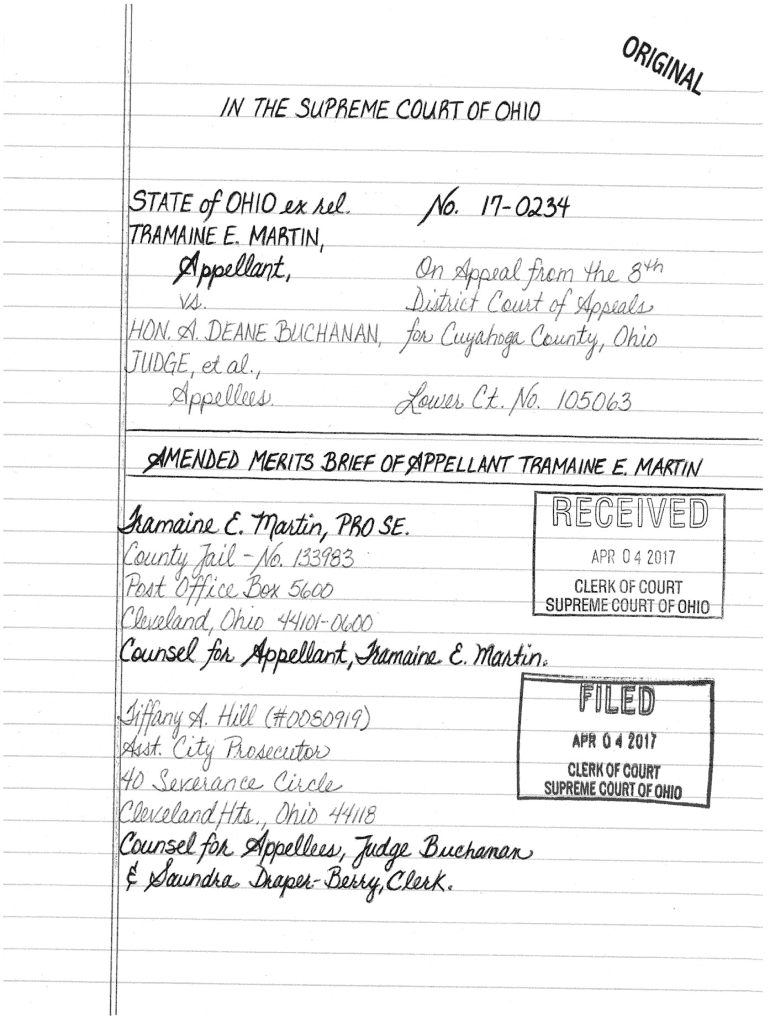 ORIGINAL
IN THE SUPREME COURT OF OHIO
STATE of OHIO ex rel.
TRAMAINE E. MARTIN,
Appellant,
vs.
HON. A. DEANE BUCHANAN,
JUDGE, et al.,
Appellees.
No. 17-0234
On Appeal from the 8th
District Court of Appeals
for Cuyahoga County, Ohio
Lower Ct. No. 105063
AMENDED MERITS BRIEF OF APPELLANT TRAMAINE E. MARTIN
Tramaine E. Martin, PRO SE.
County Jail - No. 133983
Post Office Box 5600
Cleveland, Ohio 44101-0600
Counsel for Appellant, Tramaine E. Martin.
RECEIVED
APR 04 2017
CLERK OF COURT
SUPREME COURT OF OHIO
Tiffany A. Hill (#0080919)
Asst. City Prosecutor
40 Severance Circle
Cleveland Hts., Ohio 44118
Counsel for Appellees, Judge Buchanan
& Saundra Draper-Berry, Clerk.
FILED
APR 04 2017
CLERK OF COURT
SUPREME COURT OF OHIO